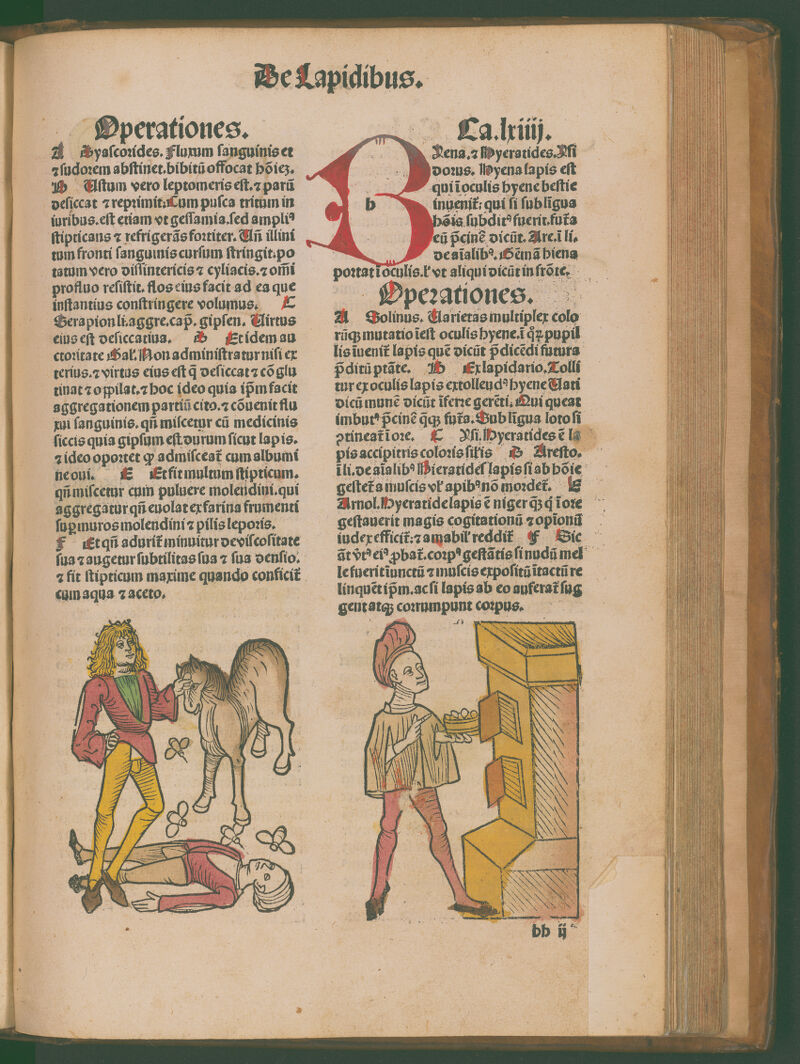 De Lapidibus.
Operationes.
A Hyascorides. Fluxum sanguinis et
⁊ sudorem abstinet. bibitū offocat hōiez.
B Ustum vero leptomeris est. ⁊ parū
desiccat ⁊ reprimit. Cum pusca tritum in
iuribus. est etiam vt gessamia. sed ampliꝰ
stipticans ⁊ refrigerās fortiter. Un̄ illini
tum fronti sanguinis cursum stringit. po
tatum vero dissintericis ⁊ cyliacis. ⁊ om̄i
profluo resistit. flos eius facit ad ea que
instantius constringere volumus. C
Serapion li. aggre. cap̄. gipsen. Uirtus
eius est desiccatiua. D Et idem au
ctoritate Gal. Non administratur nisi ex
terius. ⁊ virtus eius est q̄ desiccat ⁊ cōglu
tinat ⁊ oppilat. ⁊ hoc ideo quia ip̄m facit
aggregationem partiū cito. ⁊ cōuenit flu
xui sanguinis. qn̄ miscetur cū medicinis
siccis quia gipsum est durum sicut lapis.
⁊ ideo oportet ꝙ admisceat̄ cum albumi
ne oui. E Et fit multum stipticum.
qn̄ miscetur cum puluere molendini. qui
aggregatur qn̄ euolat ex farina frumenti
sup̄ muros molendini ⁊ pilis leporis.
F Et qn̄ adurit̄ minuitur de viscositate
sua ⁊ augetur subtilitas sua ⁊ sua densio.
⁊ fit stipticum maxime quando conficit̄
cum aqua ⁊ aceto.
Ca. lxiiij.
b
Yena. ⁊ Hyeratides. Ysi
dorus. Hyena lapis est
qui ī oculis hyene bestie
inuenit̄: qui si sub ligua
hōis subditꝰ fuerit. fut̄a
eū p̄cine dicūt. Are. ī li.
de aīalibꝰ. Gēmā hiena
portat ī oculis. l' vt aliqui dicūt in frōte.
Operationes.
A Solinus. Uarietas multiplex colo
rūqꝫ mutatio īest oculis hyene. ī qꝝ pupil
lis īuenit̄ lapis quē dicūt p̄dicēdi futura
p̄ditū ptāte. B Ex lapidario. Tolli
tur ex oculis lapis extollendꝰ hyene Uati
dicū munē dicūt īferre gerēti. Qui queat
imbutꝰ p̄cinē qꝫqꝫ fut̄a. Sub līgua loto si
ptineat̄ ī ore. C Ysi. Hyeratides ē la
pis accipitris coloris sil̄is D Aresto.
ī li. de aīalibꝰ Hieratides lapis si ab hōie
gestet̄ a muscis vl' apibꝰ nō mordet̄. E
Arnol. Hyeratide lapis ē niger qꝫ q̄ ī ore
gestauerit magis cogitationū ⁊ opīonū
iudex efficit̄: ⁊ amabil' reddit̄ F Sic
āt v̄tꝰ eiꝰ ꝓbat̄. corpꝰ gestātis si nudū mel
le fuerit īunctū ⁊ muscis expositū ītactū re
linquēt ip̄m. ac si lapis ab eo auferat̄ sug
gent atqꝫ corrumpunt corpus.
bb ij